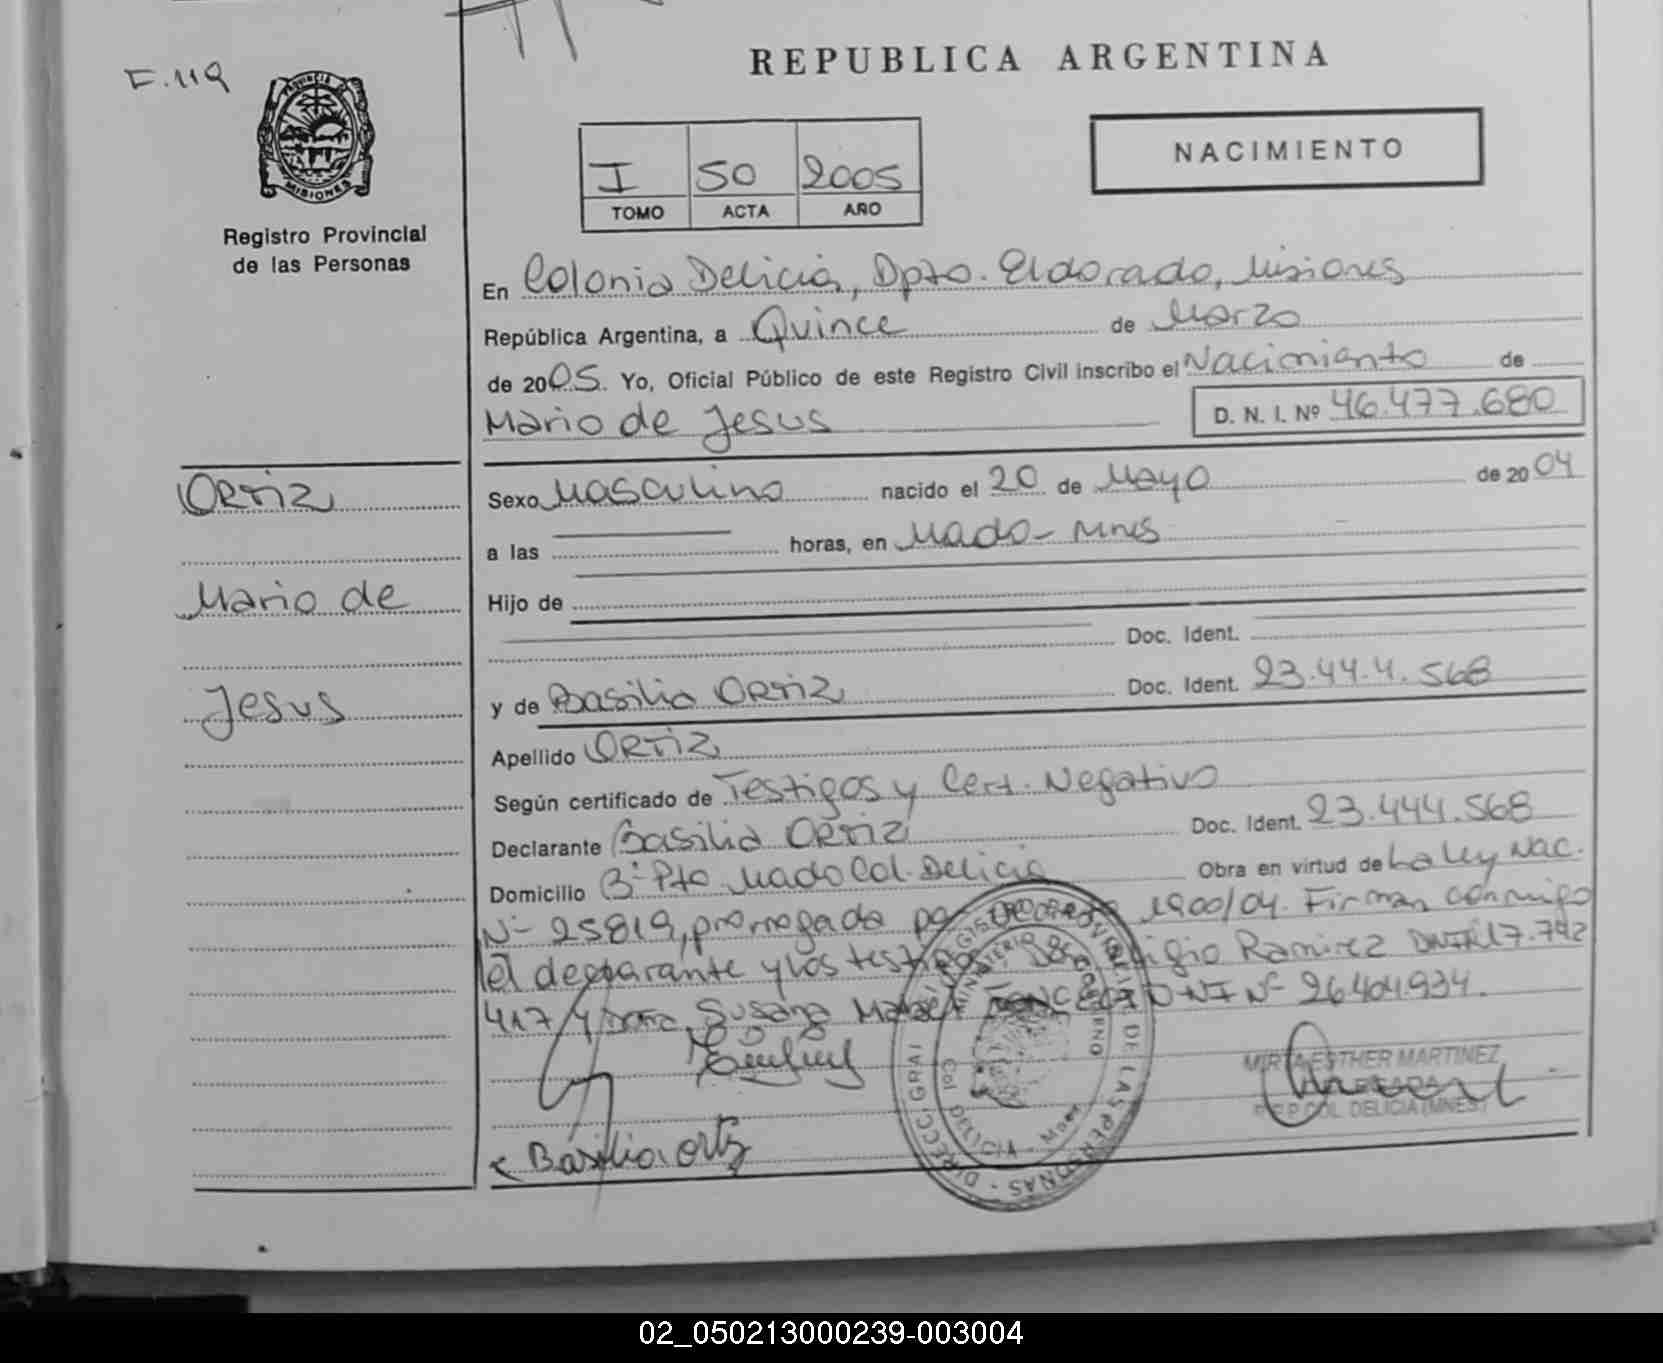 F.119
PROVINCIA DE
MISIONES
Registro Provincial
de las Personas
REPUBLICA ARGENTINA
I 50 2005
TOMO ACTA AÑO
NACIMIENTO
En Colonia Delicia, Dpto. Eldorado, Misiones
República Argentina, a Quince de Marzo
de 2005. Yo, Oficial Público de este Registro Civil inscribo el Nacimiento de
Mario de Jesus D. N. I. Nº 46.477.680
Ortiz
Mario de
Jesus
Sexo Masculino nacido el 20 de Mayo de 2004
a las horas, en Mado - Mnes
Hijo de
Doc. Ident.
y de Basilia Ortiz Doc. Ident. 23.444.568
Apellido Ortiz
Según certificado de Testigos y Cert. Negativo
Declarante Basilia Ortiz Doc. Ident. 23.444.568
Domicilio Bº Pto Mado Col. Delicia Obra en virtud de La Ley Nac.
Nº 25819, prorrogada por Decreto 1900/04. Firman conmigo
el declarante y los testigos Ramirez 17.742
417 y Susana DNI Nº 26.404.934.
MIRTA ESTHER MARTINEZ
COL. DELICIA (MNES.)
Basilia ortiz
DE LAS PERSONAS
DELICIA
02_050213000239-003004